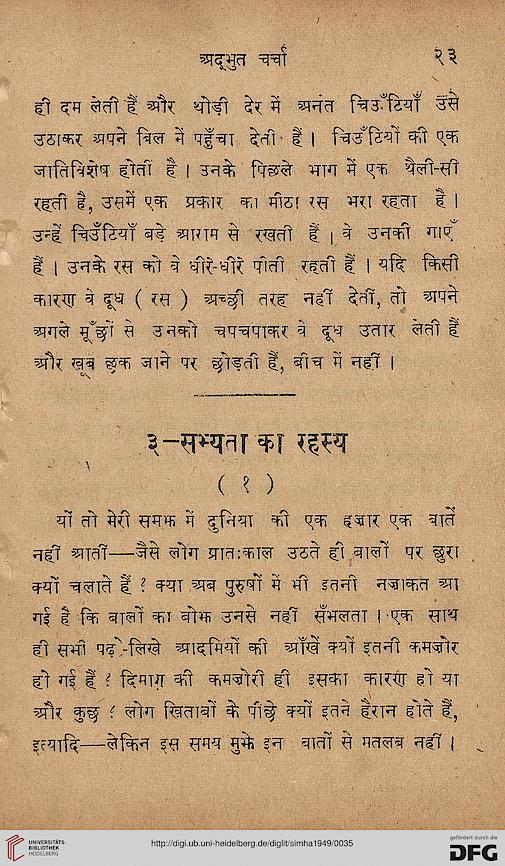 अद्भुत चर्चा २३
ही दम लेती हैं और थोड़ी देर में अनंत चिउँटियाँ उसे
उठाकर अपने बिल में पहुँचा देती हैं । चिउँटियों की एक
जातिविशेष होती है । उनके पिछले भाग में एक थैली-सी
रहती है, उसमें एक प्रकार का मीठा रस भरा रहता है ।
उन्हें चिउँटियाँ बड़े आराम से रखती हैं । वे उनकी गाएँ
हैं । उनके रस को वे धीरे-धीरे पीती रहती हैं । यदि किसी
कारण वे दूध ( रस ) अच्छी तरह नहीं देतीं, तो अपने
अगले मूँछों से उनको चपचपाकर वे दूध उतार लेती हैं
और खूब छक जाने पर छोड़ती हैं, बीच में नहीं ।
३—सभ्यता का रहस्य
( १ )
यों तो मेरी समझ में दुनिया की एक हज़ार एक बातें
नहीं आतीं—जैसे लोग प्रातःकाल उठते ही बालों पर छुरा
क्यों चलाते हैं ? क्या अब पुरुषों में भी इतनी नज़ाकत आ
गई है कि बालों का बोझ उनसे नहीं सँभलता । एक साथ
ही सभी पढ़े-लिखे आदमियों की आँखें क्यों इतनी कमज़ोर
हो गई हैं ? दिमाग़ की कमज़ोरी ही इसका कारण हो या
और कुछ ? लोग खिताबों के पीछे क्यों इतने हैरान होते हैं,
इत्यादि—लेकिन इस समय मुझे इन बातों से मतलब नहीं ।
UNIVERSITÄTS-
BIBLIOTHEK
HEIDELBERG
http://digi.ub.uni-heidelberg.de/diglit/simha1949/0035
gefördert durch die
DFG